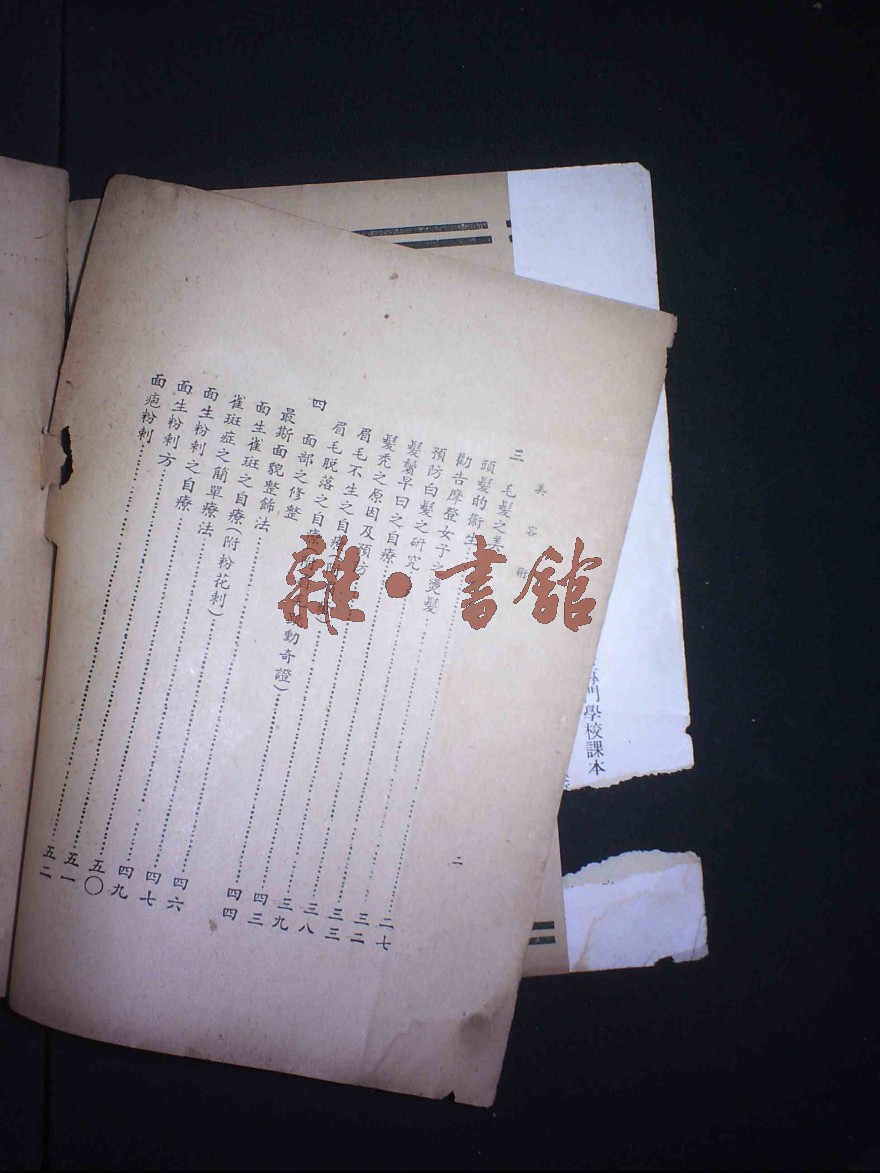 美容術
二
三 毛髮之美
頭髮的衛生……二七
勸告摩登女子之燙髮……三二
預防白髮之研究……三三
髮鬚早曰之自療……三八
髮禿之原因及預方……三九
眉毛不生之自療……四三
眉毛脫落之自療動奇證）……四四
四 面部之修整
最斯面貌整飾法……四六
面生雀斑之自療（附粉花刺）……四七
雀斑症之簡單療法……四九
面生粉刺之自療……五〇
面生粉刺方……五一
面皰粉刺……五二
門學校課本
雜·書館